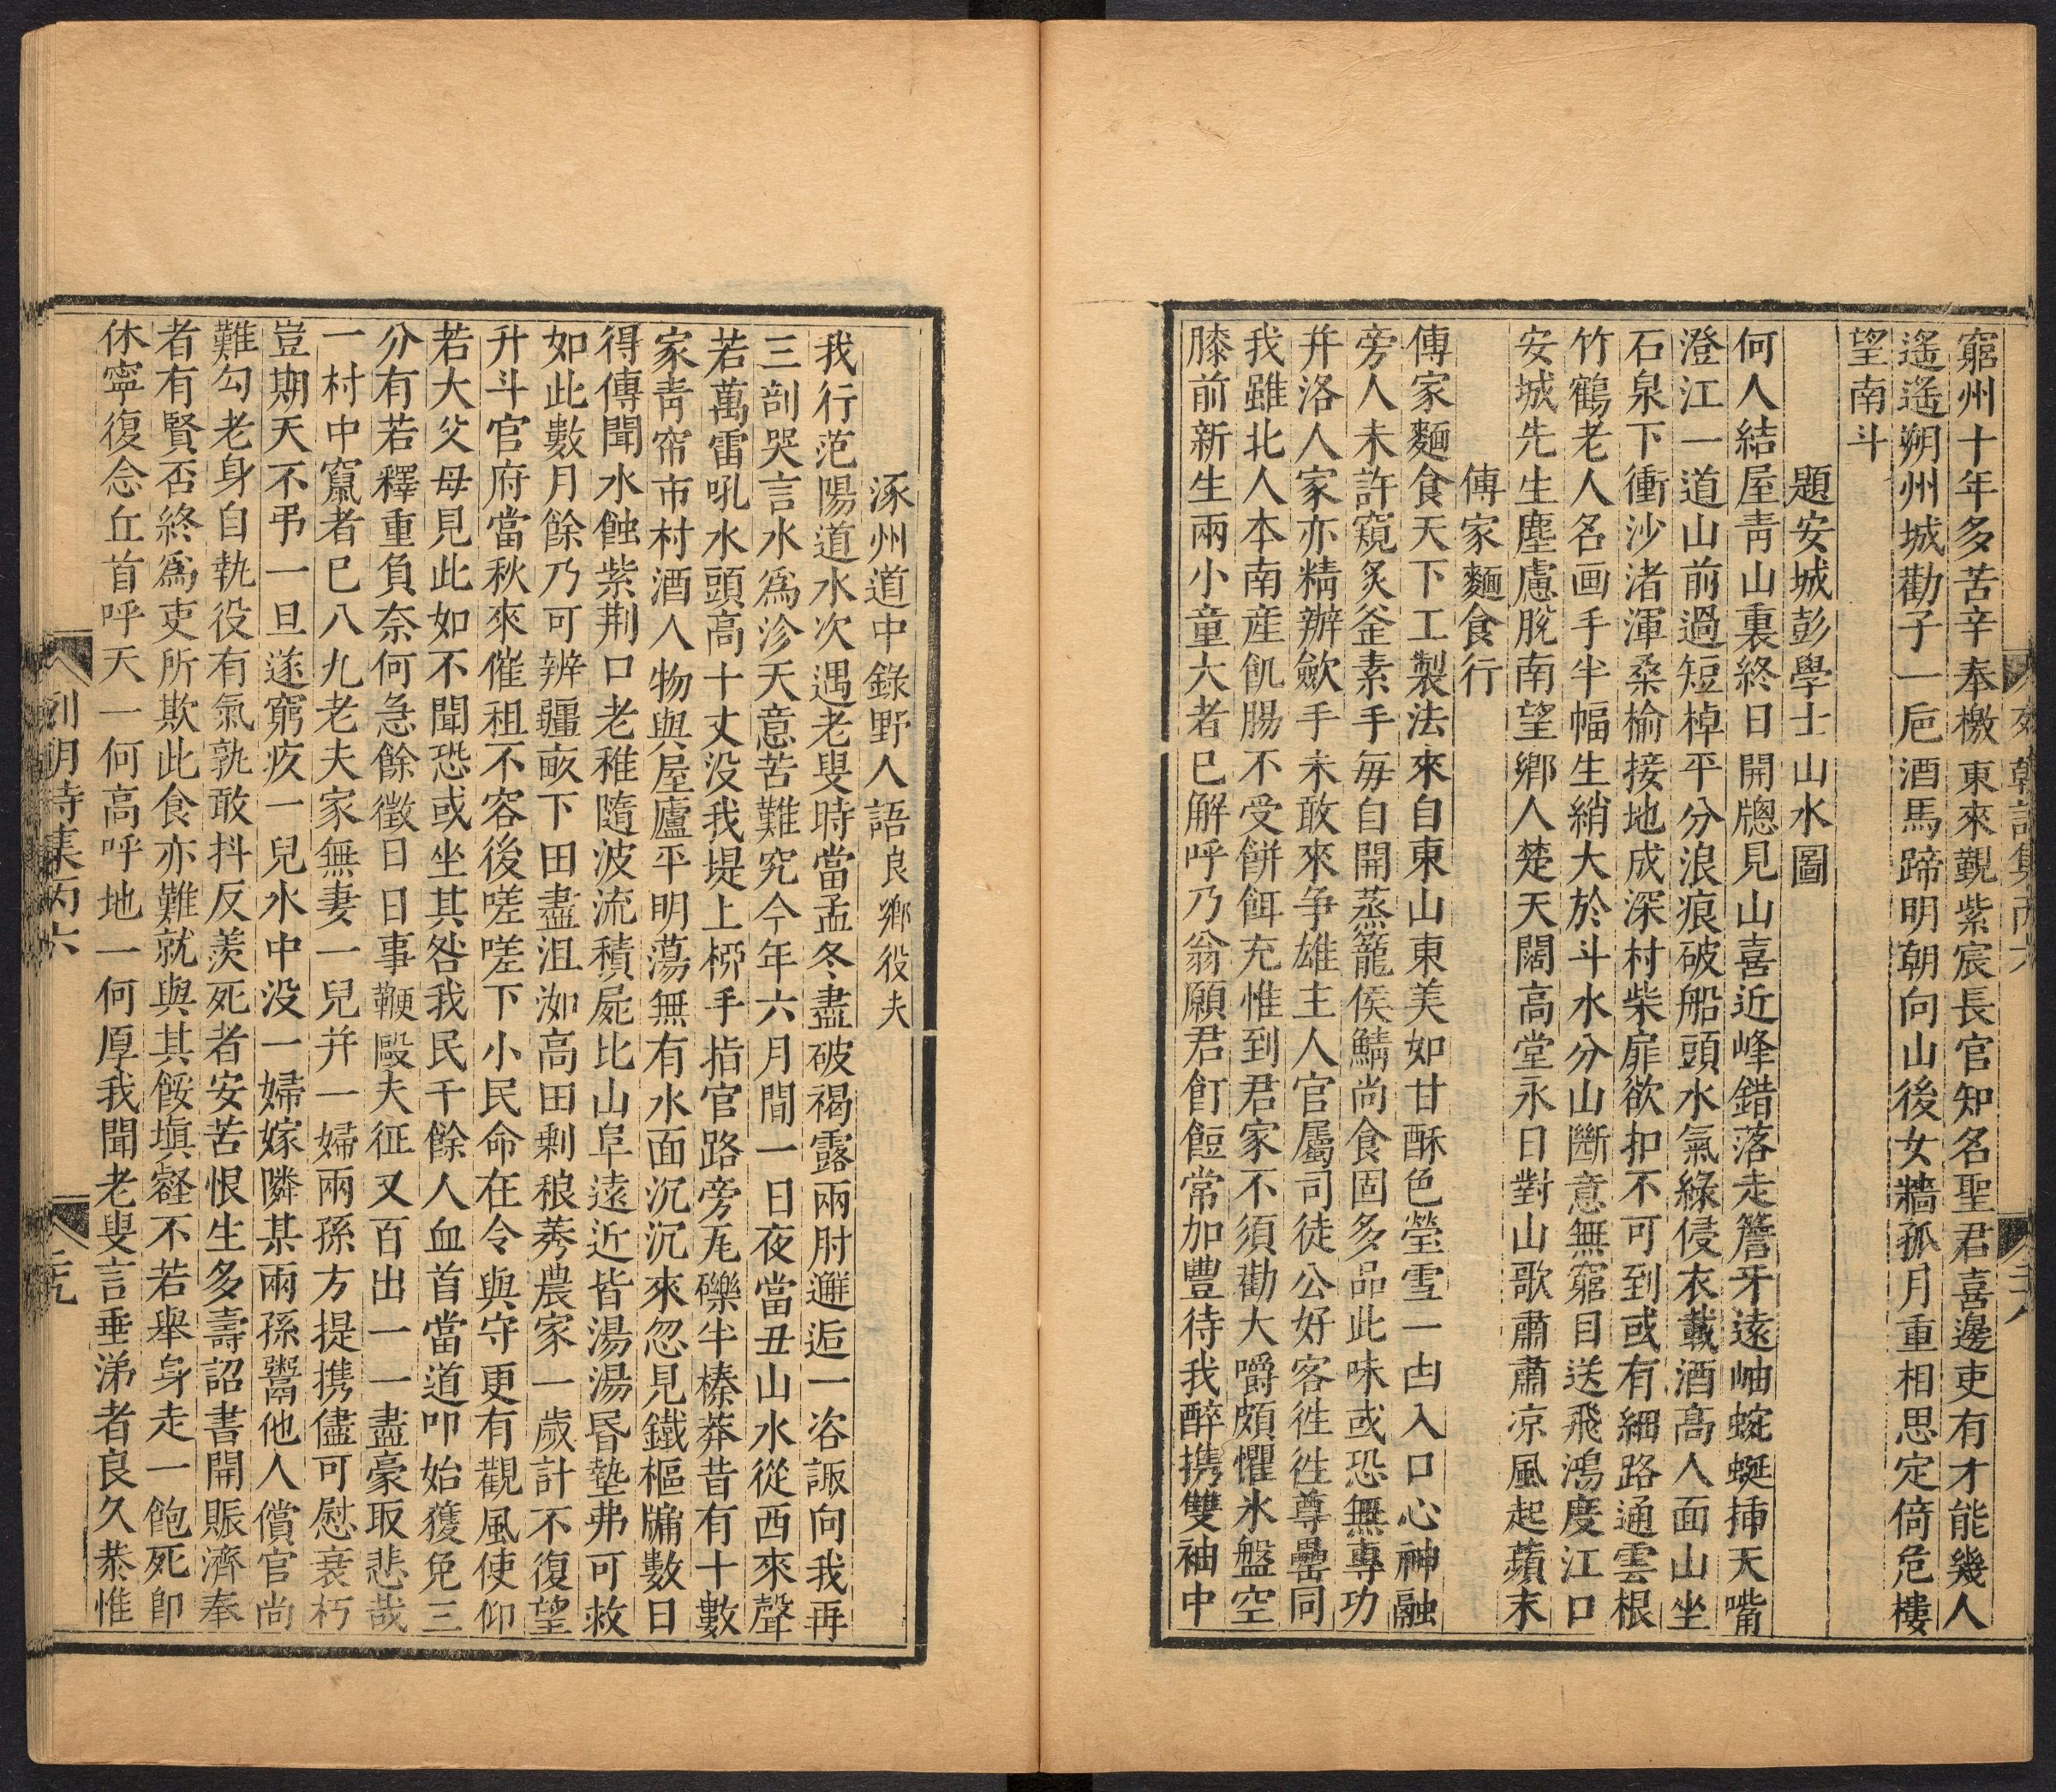 窮州十年多苦辛奉檄東來覲紫宸長官知名聖君喜邊吏有才能幾人
遙遙朔州城勸子一卮酒馬蹄明朝向山後女牆孤月重相思定倚危樓
望南斗
題安城彭學士山水圖
何人結屋靑山裏終日開牕見山喜近峰錯落走簷牙遠岫蜿蜒揷天嘴
澄江一道山前過短棹平分浪痕破船頭水氣綠侵衣載酒高人面山坐
石泉下衝沙渚渾桑榆接地成深村柴扉欲扣不可到或有細路通雲根
竹鶴老人名画手半幅生綃大於斗水分山斷意無窮目送飛鴻度江口
安城先生塵慮脫南望鄉人楚天闊高堂永日對山歌肅肅凉風起蘋末
傳家麵食行
傳家麵食天下工製法來自東山東美如甘酥色瑩雪一由入口心神融
旁人未許窺炙釜素手每自開蒸籠侯鯖尚食固多品此味或恐無專功
幷洛人家亦精辦歛手未敢來争雄主人官屬司徒公好客徃徃尊罍同
我雖北人本南産飢腸不受餠餌充惟到君家不須勸大嚼頗懼氷盤空
膝前新生兩小童大者已解呼乃翁願君飣餖常加豐待我醉携雙袖中
涿州道中錄野人語良鄉役夫
我行范陽道水次遇老叟時當孟冬盡破褐露兩肘邂逅一咨諏向我再
三剖哭言水爲沴天意苦難究今年六月間一日夜當丑山水從西來聲
若萬雷吼水頭高十丈没我堤上桺手指官路旁瓦礫半榛莽昔有十數
家靑帘市村酒人物與屋廬平明蕩無有水面沉沉來忽見鐵樞牖數日
得傳聞水蝕紫荆口老稚隨波流積屍比山阜遠近皆湯湯昬墊弗可救
如此數月餘乃可辨疆畝下田盡沮洳高田剩稂莠農家一歲計不復望
升斗官府當秋來催租不容後嗟嗟下小民命在令與守更有觀風使仰
若大父母見此如不聞恐或坐其咎我民千餘人血首當道叩始獲免三
分有若釋重負奈何急餘徵日日事鞭毆夫征又百出一一盡豪取悲哉
一村中竄者已八九老夫家無妻一兒幷一婦兩孫方提携儘可慰衰朽
豈期天不弔一旦遂窮疚一兒水中没一婦嫁隣某兩孫鬻他人償官尚
難勾老身自執役有氣孰敢抖反羨死者安苦恨生多壽詔書開賑濟奉
者有賢否終爲吏所欺此食亦難就與其餒塡壑不若舉身走一飽死卽
休寧復念丘首呼天一何高呼地一何厚我聞老叟言垂涕者良久恭惟
列朝詩集丙六